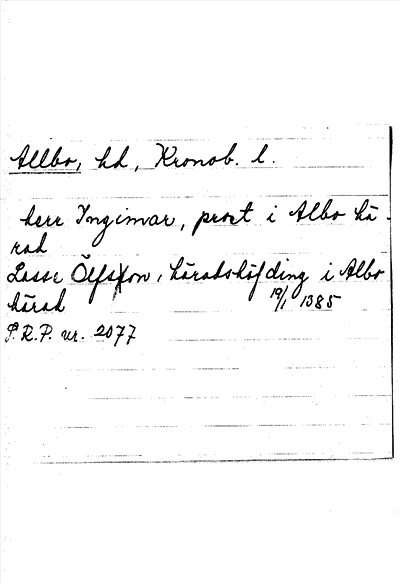 Allbo, hd, Kronob. l.
herr Ingimar, prost i Albo hä-
rad
Lasse Ölfsson, häradshöfding i Albo
härad 19/1 1385
S.R.P. nr. 2077